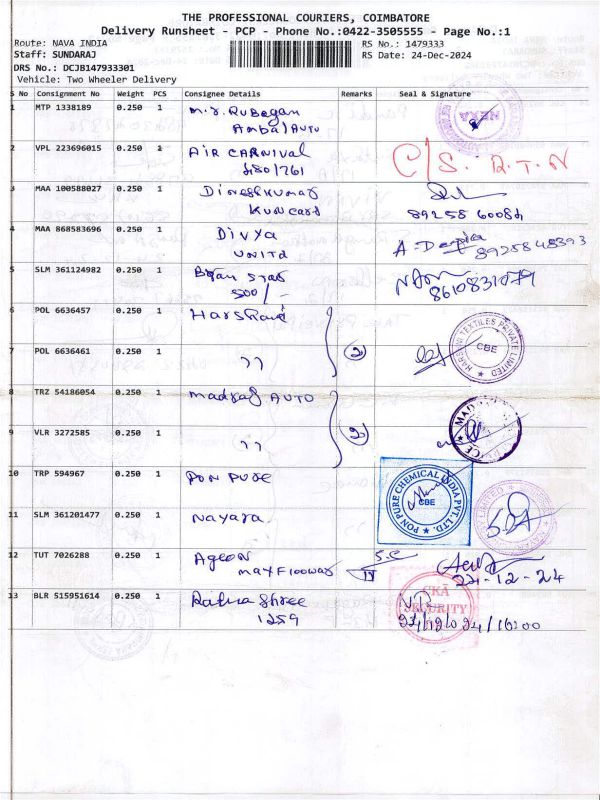 THE PROFESSIONAL COURIERS, COIMBATORE
Delivery Runsheet - PCP - Phone No.:0422-3505555 - Page No.:1
Route: NAVA INDIA
RS No.: 1479333
Staff: SUNDARAJ
RS Date: 24-Dec-2024
DRS No.: DCJB147933301
Vehicle: Two Wheeler Delivery
S No Consignment No Weight PCS Consignee Details Remarks Seal & Signature
1 MTP 1338189 0.250 1 M.S. Rubegan
Ambal Auto
NEXA
2 VPL 223696015 0.250 1 AIR CARNIVAL C/S. R.T.N
3 MAA 100588027 0.250 1 Dineshkumar
Kuncard
4 MAA 868583696 0.250 1 Divya
UNITD
8925848393
5 SLM 361124982 0.250 1
500/-
8610831079
6 POL 6636457 0.250 1
7 POL 6636461 0.250 1 " 2
HARSHNI TEXTILES PRIVATE LIMITED
CBE
8 TRZ 54186054 0.250 1 Madras AUTO
9 VLR 3272585 0.250 1 " 2
10 TRP 594967 0.250 1 PON PURE
PON PURE CHEMICAL INDIA PVT. LTD.
CBE
11 SLM 361201477 0.250 1 Nayara
LIMITED
12 TUT 7026288 0.250 1 Ageon S.C
24-12-24
13 BLR 515951614 0.250 1 Ratna Shree
1259
SKA
SECURITY
24/12/2024/16:00